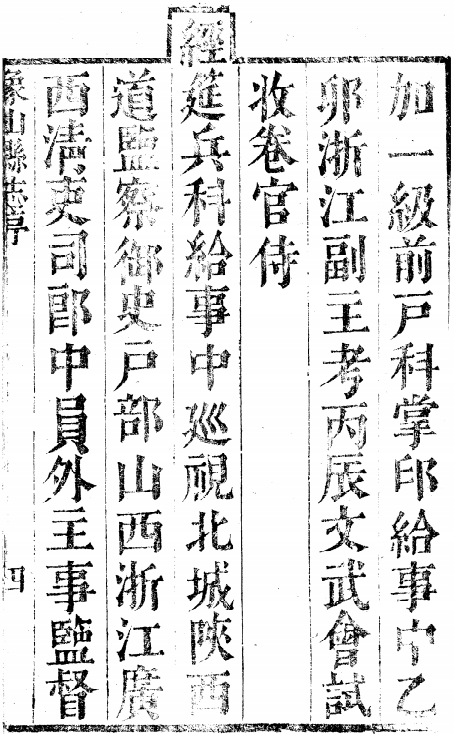 加一級前戶科掌印給事中乙
卯浙江副主考丙辰文武會試
收卷官侍
經筵兵科給事中巡視北城陝西
道監察御史戶部山西浙江廣
西淸吏司郎中員外主事監督
象山縣志序
四